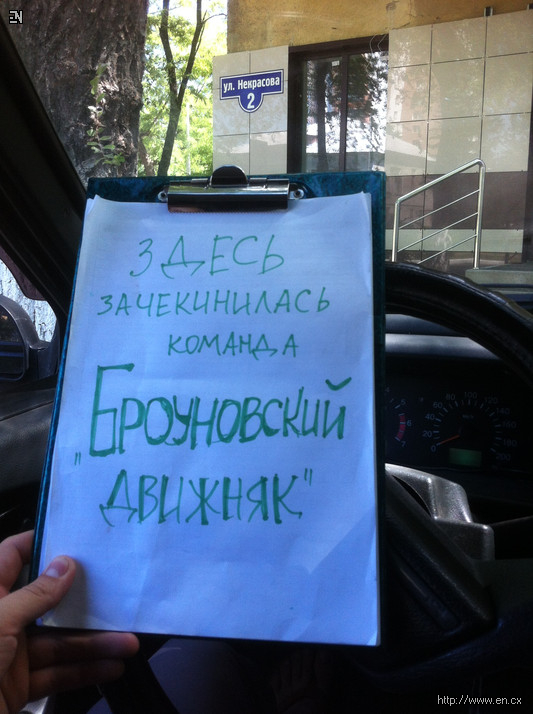 EN
ул. Некрасова
2
ЗДЕСЬ
ЗАЧЕКИНИЛАСЬ
КОМАНДА
"БРОУНОВСКИЙ
ДВИЖНЯК"
http://www.en.cx